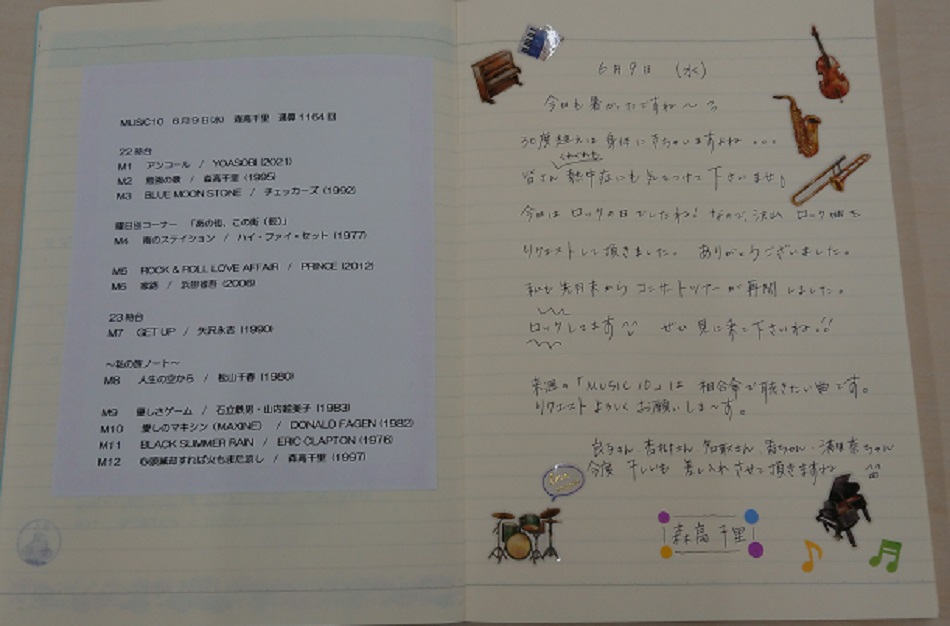 MUSIC10 6月9日(水) 森高千里 通算1164回
22時台
M1 アンコール / YOASOBI (2021)
M2 勉強の歌 / 森高千里 (1995)
M3 BLUE MOON STONE / チェッカーズ (1992)
曜日別コーナー 「あの街、この街(仮)」
M4 南のステイション / ハイ・ファイ・セット (1977)
M5 ROCK & ROLL LOVE AFFAIR / PRINCE (2012)
M6 家路 / 浜田省吾 (2006)
23時台
M7 GET UP / 矢沢永吉 (1990)
～私の旅ノート～
M8 人生の空から / 松山千春 (1980)
M9 優しさゲーム / 石立鉄男・山内絵美子 (1983)
M10 愛しのマキシン (MAXINE) / DONALD FAGEN (1982)
M11 BLACK SUMMER RAIN / ERIC CLAPTON (1976)
M12 心頭滅却すれば火もまた涼し / 森高千里 (1997)
6月9日 (水)
今日も暑かったですね～
30度超えは身体にきちゃいますよね...
くれぐれも
皆さん熱中症にも気をつけて下さいませ
今日はロックの日でしたね! なので、沢山 ロック曲を
リクエストして頂きました。ありがとうございました。
私も先月末からコンサートツアーが再開しました。
ロックしてます ぜひ見に来て下さいね!!
来週の「MUSIC 10」は 相合傘で聴きたい曲です。
リクエストよろしくお願いしま～す。
良子さん 杏樹さん 名取さん 香ちゃん
今後 差し入れさせて頂きますね
森高千里